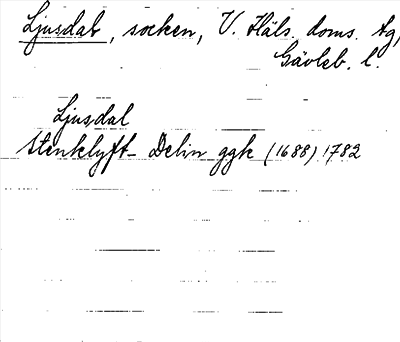 Ljusdal, socken, V. Häls. doms. tg,
Gävleb. l.
Ljusdal
Stenklyft- Delin ggk (1688) 1782